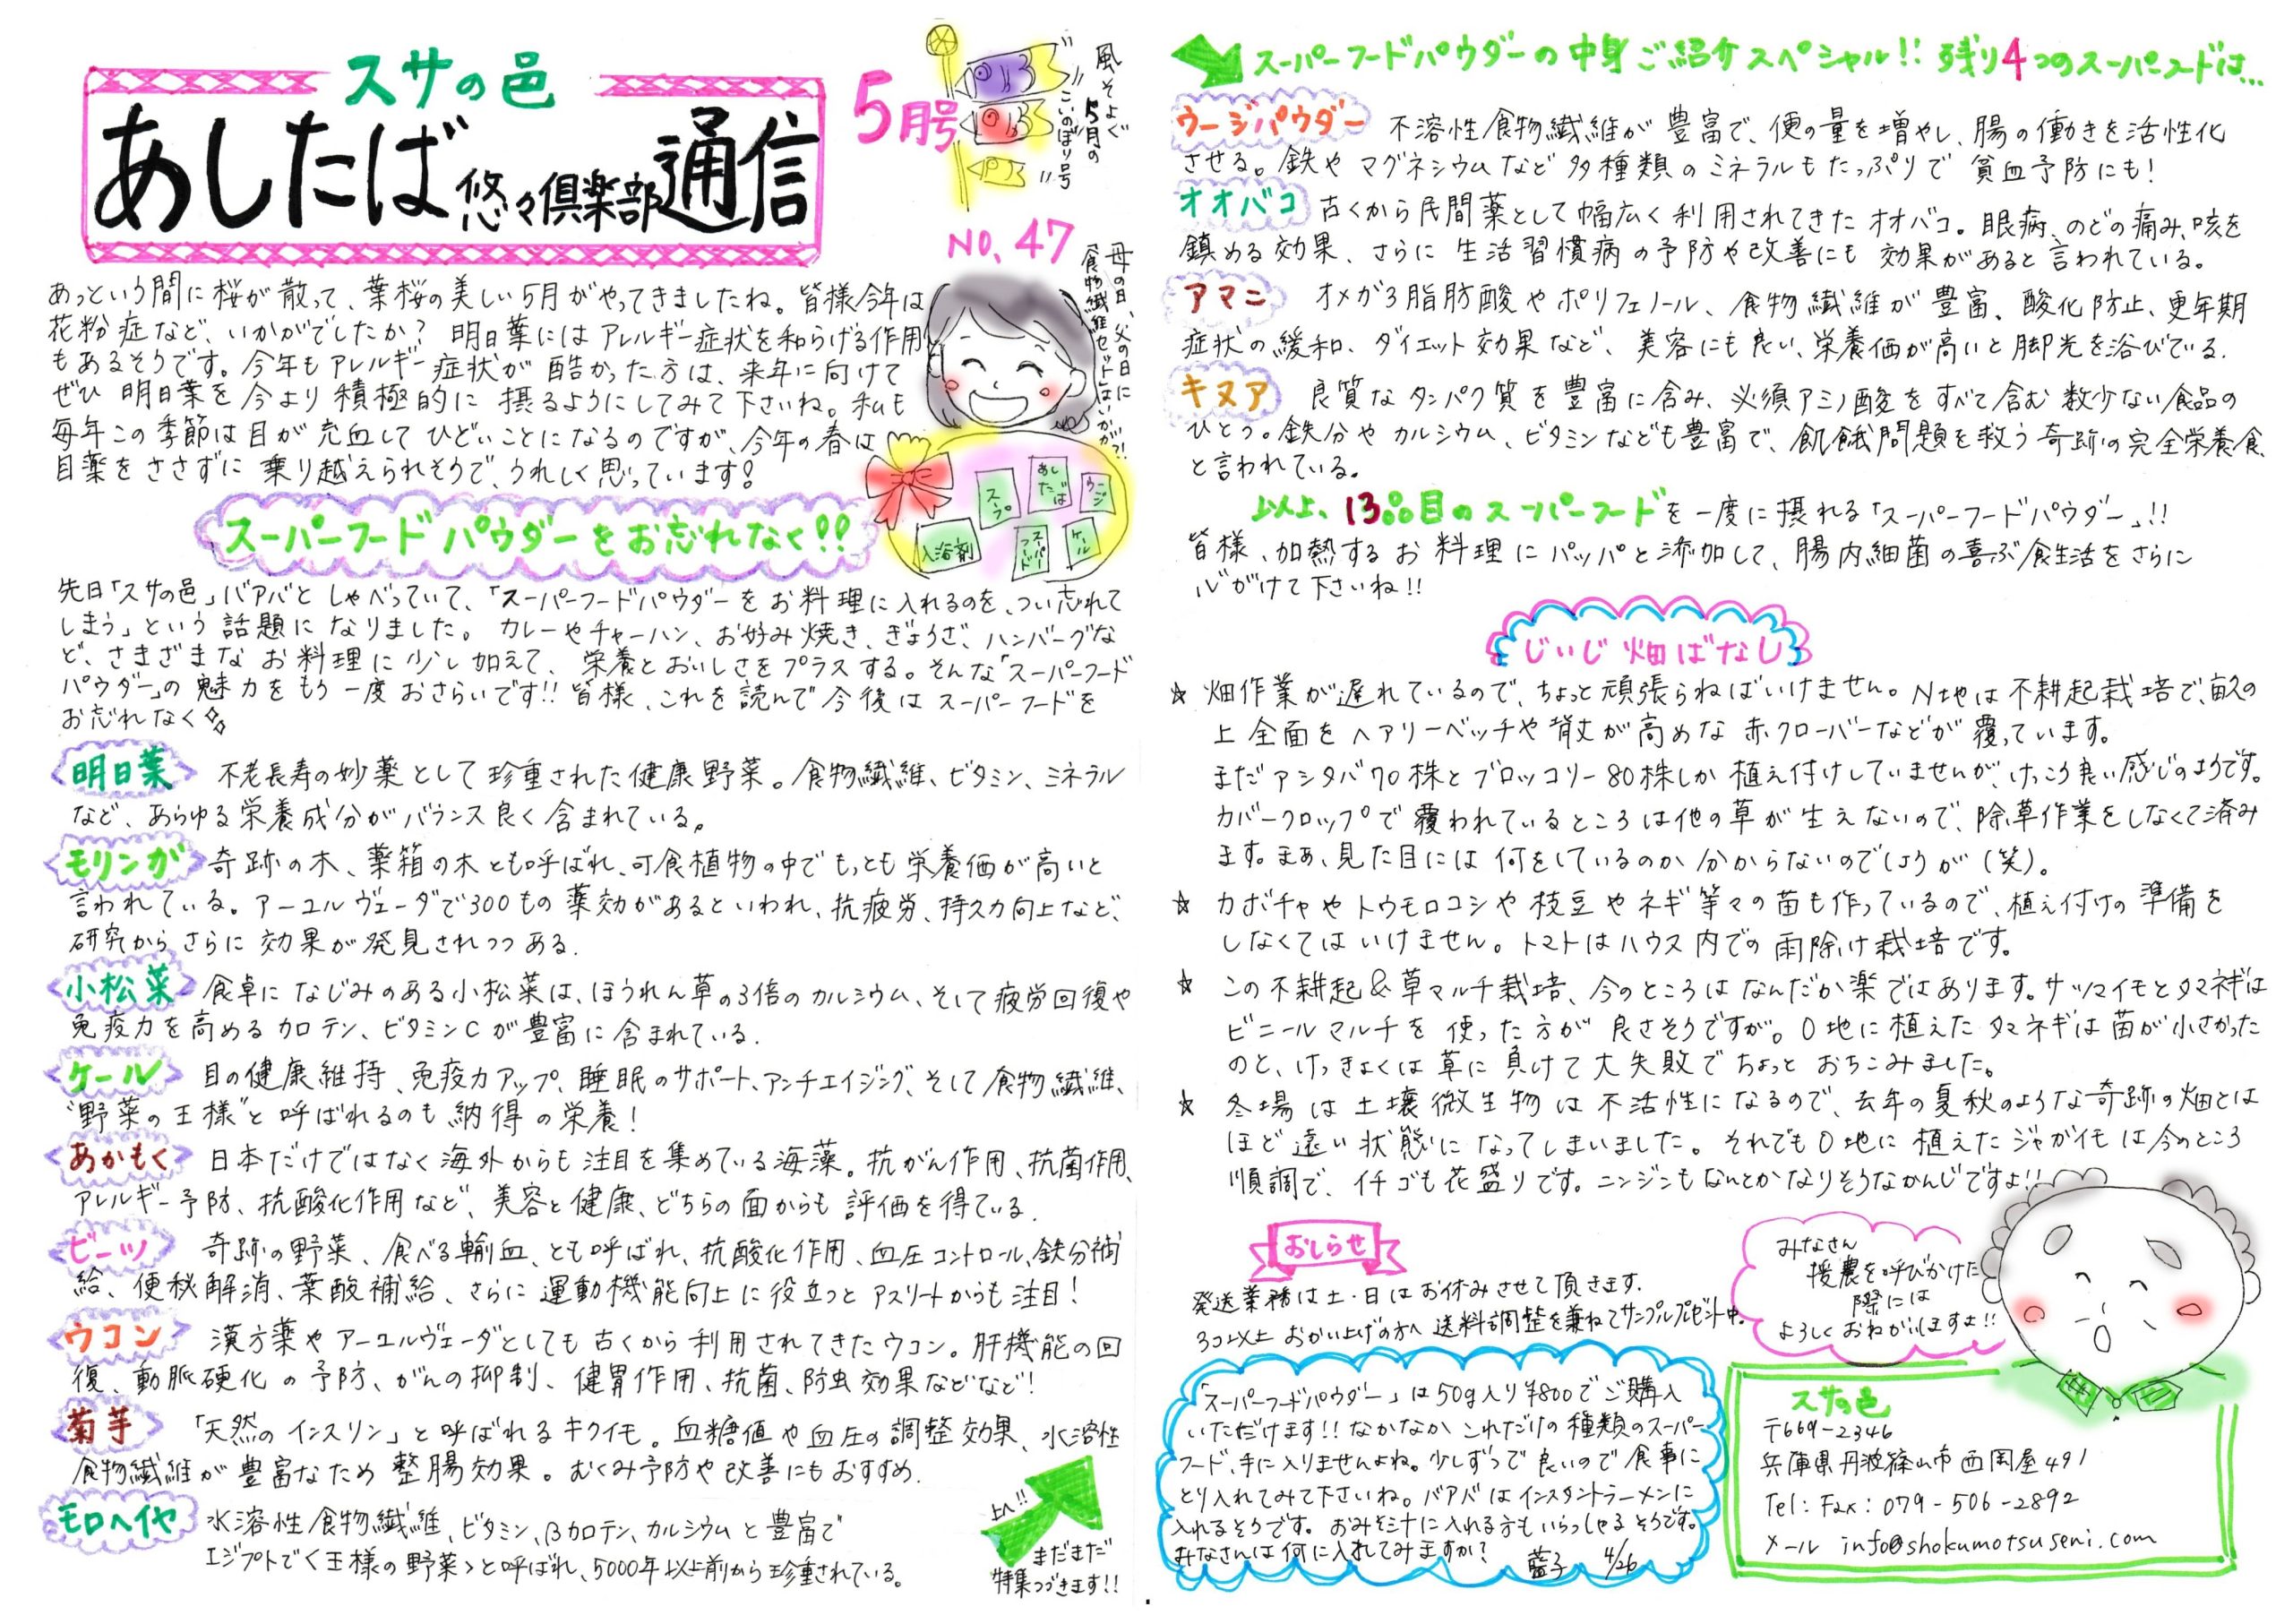 スサの邑
あしたば悠々倶楽部通信
5月号
風そよぐ
5月の
こいのぼり号
NO,47
母の日、父の日に
食物繊維セットはいかが?!
あっという間に桜が散って、葉桜の美しい5月がやってきましたね。皆様今年は
花粉症など、いかがでしたか?明日葉にはアレルギー症状を和らげる作用
もあるそうです。今年もアレルギー症状が酷かった方は、来年に向けて
ぜひ明日葉を今より積極的に摂るようにしてみて下さいね。私も
毎年この季節は目が充血してひどいことになるのですが、今年の春は
目薬をささずに乗り越えられそうで、うれしく思っています!
スープ
あしたば
ウージ
入浴剤
スーパーフード
ケール
スーパーフードパウダーをお忘れなく!!
先日「スサの邑」バアバとしゃべっていて、「スーパーフードパウダーをお料理に入れるのを、つい忘れて
しまう」という話題になりました。カレーやチャーハン、お好み焼き、ぎょうざ、ハンバーグな
ど、さまざまなお料理に少し加えて、栄養とおいしさをプラスする。そんな「スーパーフード
パウダー」の魅力をもう一度おさらいです!!皆様、これを読んで今後はスーパーフードを
お忘れなく
明日葉 不老長寿の妙薬として珍重された健康野菜。食物繊維、ビタミン、ミネラル
など、あらゆる栄養成分がバランス良く含まれている。
モリンガ 奇跡の木、薬箱の木とも呼ばれ、可食植物の中でもっとも栄養価が高いと
言われている。アーユルヴェーダで300もの薬効があるといわれ、抗疲労、持久力向上など、
研究からさらに効果が発見されつつある.
小松菜 食卓になじみのある小松菜は、ほうれん草の3倍のカルシウム、そして疲労回復や
免疫力を高めるカロテン、ビタミンCが豊富に含まれている.
ケール 目の健康維持、免疫力アップ、睡眠のサポート、アンチエイジング、そして食物繊維、
"野菜の王様"と呼ばれるのも納得の栄養!
あかもく 日本だけではなく海外からも注目を集めている海藻。抗がん作用、抗菌作用、
アレルギー予防、抗酸化作用など、美容と健康、どちらの面からも評価を得ている.
ビーツ 奇跡の野菜、食べる輸血、とも呼ばれ、抗酸化作用、血圧コントロール、鉄分補
給、便秘解消、葉酸補給、さらに運動機能向上に役立つとアスリートからも注目!
ウコン 漢方薬やアーユルヴェーダとしても古くから利用されてきたウコン。肝機能の回
復、動脈硬化の予防、がんの抑制、健胃作用、抗菌、防虫効果などなど!
菊芋 「天然のインスリン」と呼ばれるキクイモ。血糖値や血圧の調整効果、水溶性
食物繊維が豊富なため整腸効果。むくみ予防や改善にもおすすめ.
モロヘイヤ 水溶性食物繊維、ビタミン、βカロテン、カルシウムと豊富で
エジプトで<王様の野菜>と呼ばれ、5000年以上前から珍重されている。
上へ!!
まだまだ
特集つづきます!!
スーパーフードパウダーの中身ご紹介スペシャル!!残り4つのスーパーフードは...
ウージパウダー 不溶性食物繊維が豊富で、便の量を増やし、腸の働きを活性化
させる。鉄やマグネシウムなど多種類のミネラルもたっぷりで貧血予防にも!
オオバコ 古くから民間薬として幅広く利用されてきたオオバコ。眼病、のどの痛み、咳を
鎮める効果、さらに生活習慣病の予防や改善にも効果があると言われている。
アマニ オメガ3脂肪酸やポリフェノール、食物繊維が豊富、酸化防止、更年期
症状の緩和、ダイエット効果など、美容にも良い、栄養価が高いと脚光を浴びている.
キヌア 良質なタンパク質を豊富に含み、必須アミノ酸をすべて含む数少ない食品の
ひとつ。鉄分やカルシウム、ビタミンなども豊富で、飢餓問題を救う奇跡の完全栄養食、
と言われている。
以上、13品目のスーパーフードを一度に摂れる「スーパーフードパウダー」!!
皆様、加熱するお料理にパッパと添加して、腸内細菌の喜ぶ食生活をさらに
心がけて下さいね!!
じいじ畑ばなし
☆ 畑作業が遅れているので、ちょっと頑張らねばいけません。N地は不耕起栽培で、畝の
上全面をヘアリーベッチや背丈が高めな赤クローバーなどが覆っています。
まだアシタバ70株とブロッコリー80株しか植え付けしていませんが、けっこう良い感じのようです。
カバークロップで覆われているところは他の草が生えないので、除草作業をしなくて済み
ます。まあ、見た目には何をしているのか分からないのでしょうが(笑)。
☆ カボチャやトウモロコシや枝豆やネギ等々の苗も作っているので、植え付けの準備を
しなくてはいけません。トマトはハウス内での雨除け栽培です。
☆ この不耕起&草マルチ栽培、今のところはなんだか楽ではあります。サツマイモとタマネギは
ビニールマルチを使った方が良さそうですが。O地に植えたタマネギは苗が小さかった
のと、けっきょくは草に負けて大失敗でちょっとおちこみました。
☆ 冬場は土壌微生物は不活性になるので、去年の夏秋のような奇跡の畑とは
ほど遠い状態になってしまいました。それでもO地に植えたジャガイモは今のところ
順調で、イチゴも花盛りです。ニンジンもなんとかなりそうなかんじですよ!!
おしらせ
発送業務は土・日はお休みさせて頂きます.
3コ以上お買い上げの方へ送料調整を兼ねてサンプルプレゼント中.
みなさん
援農を呼びかけた
際には
よろしくおねがいしますよ!!
「スーパーフードパウダー」は50g入り¥800でご購入
いただけます!!なかなかこれだけの種類のスーパー
フード、手に入りませんよね。少しずつで良いので食事に
とり入れてみて下さいね。バアバはインスタントラーメンに
入れるそうです。おみそ汁に入れる方もいらっしゃるそうです。
みなさんは何に入れてみますか? 藍子 4/26
スサの邑
〒669-2346
兵庫県丹波篠山市西岡屋491
Tel:Fax:079-506-2892
メール info@shokumotsuseni.com